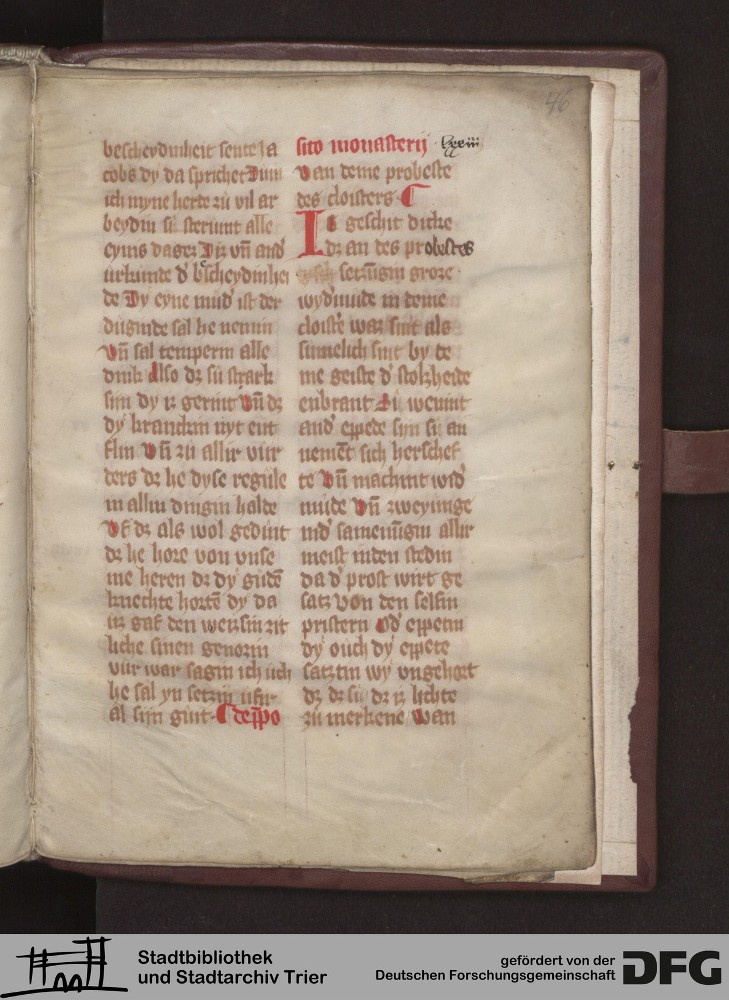 46
bescheydinheit sente ja
cobs dy da sprichet Dun
ich myne herte zu vil ar
beydin si steruint alle
eyms dages Dis vn̄ and'
urkunde d' bescheydinhei
de Dy eyne mud' ist der
duginde sal he nemin
Vn̄ sal temperin alle
dink Also dz su stark
sin dy iz gerint Vn̄ dz
dy krankin nyt ent
flin Vn̄ zu allir vur
ders dz he dyse regule
in allin dingin halde
Vf dz als wol gedint
dz he hore von vnse
me heren dz dy gudē
knechte hortē dy da
iz gaf den weizsin zit
liche sinen genozin
vur war sagin ich uch
he sal yn setzin ubir
al sijn gut. De p̄po
sito monasterij lxxiii
Van deme probeste
des cloisters
Is geschit dicke
dz an des probestes
setzūgin groze
wyd'mude in deme
cloist'e waz sint als
sumelich sint by de
me geiste d' stolzheite
enbrant Si wenint
and' eppede sijn si an
nemēt sich herschef
te Vn̄ machint wid'
mude Vn̄ zweyunge
ind' samenūgin allir
meist inden stedin
da d' prost wirt ge
satz von den selfin
pristern Od' eppetin
dy ouch dy eppete
satztin wy vngehort
dz dz si, dz iz lichte
zu merkene, Wan
Stadtbibliothek
und Stadtarchiv Trier
gefördert von der
Deutschen Forschungsgemeinschaft
DFG